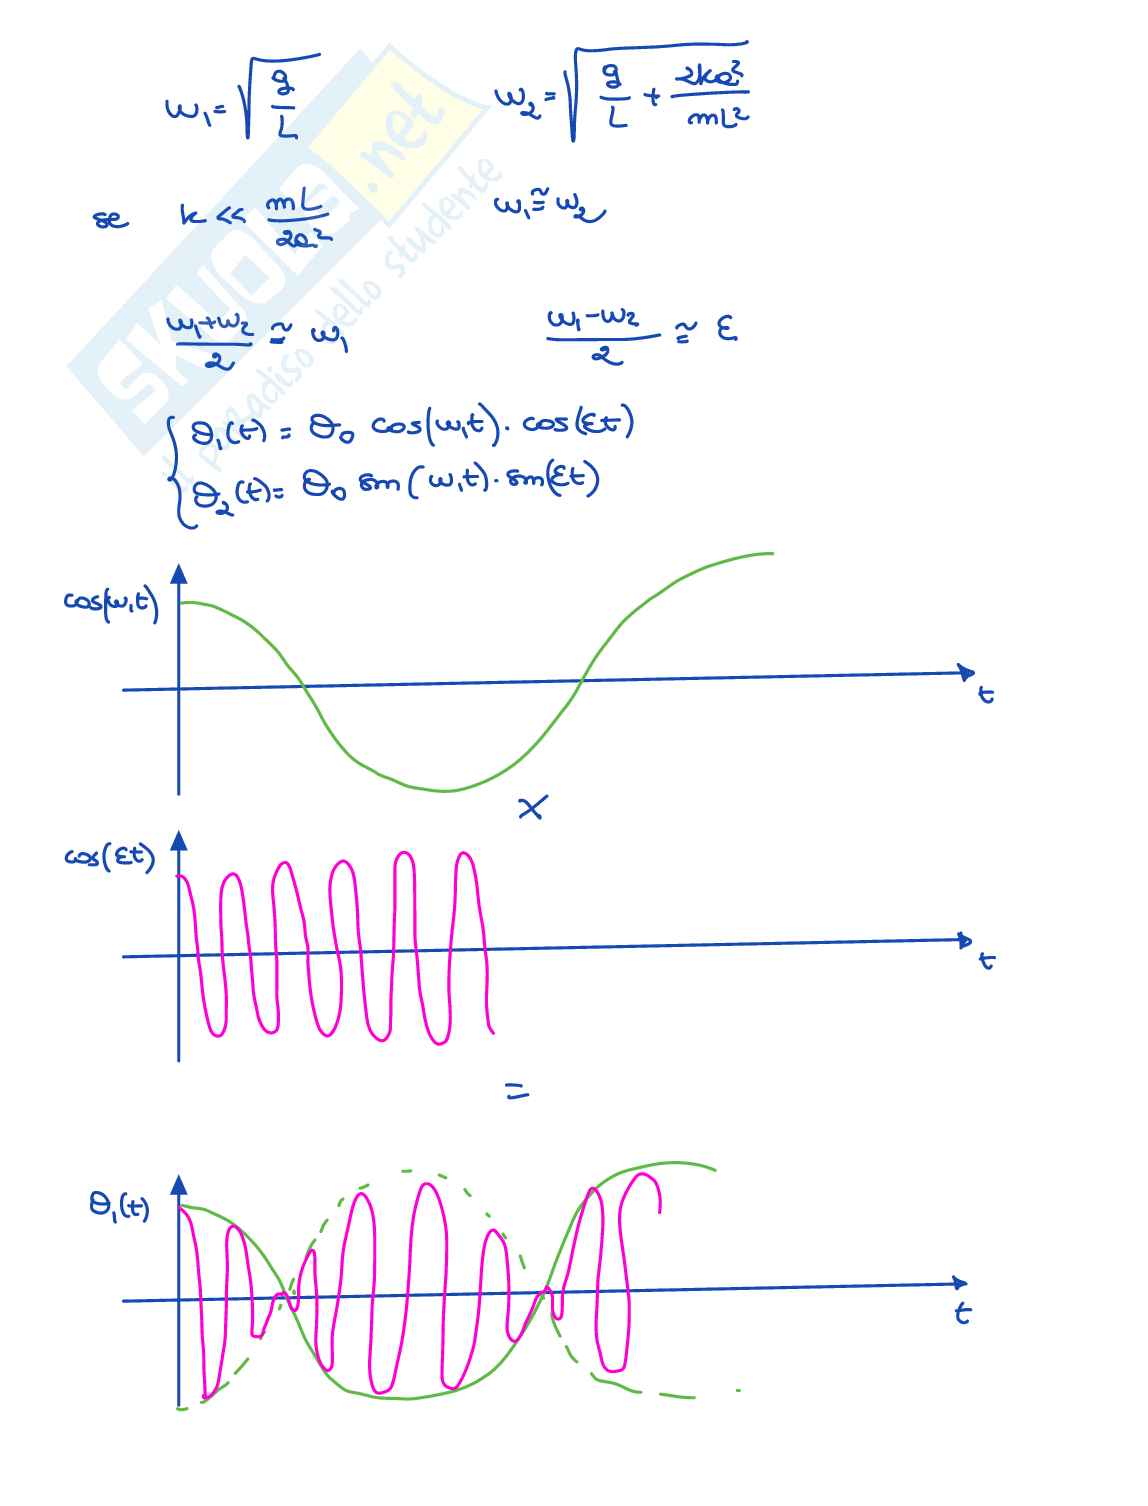 ω₁ = √(g/L) ω₂ = √(g/L + 2ka²/mL²)
se k << mL/2a² ω₁ ≅ ω₂
(ω₁+ω₂)/2 ≅ ω₁ (ω₁-ω₂)/2 ≅ ε
θ₁(t) = θ₀ cos(ω₁t)· cos(εt)
θ₂(t) = θ₀ sin(ω₁t)· sin(εt)
cos(ω₁t)
t
×
cos(εt)
t
=
θ₁(t)
t
SKUOLA.net
il paradiso dello studente